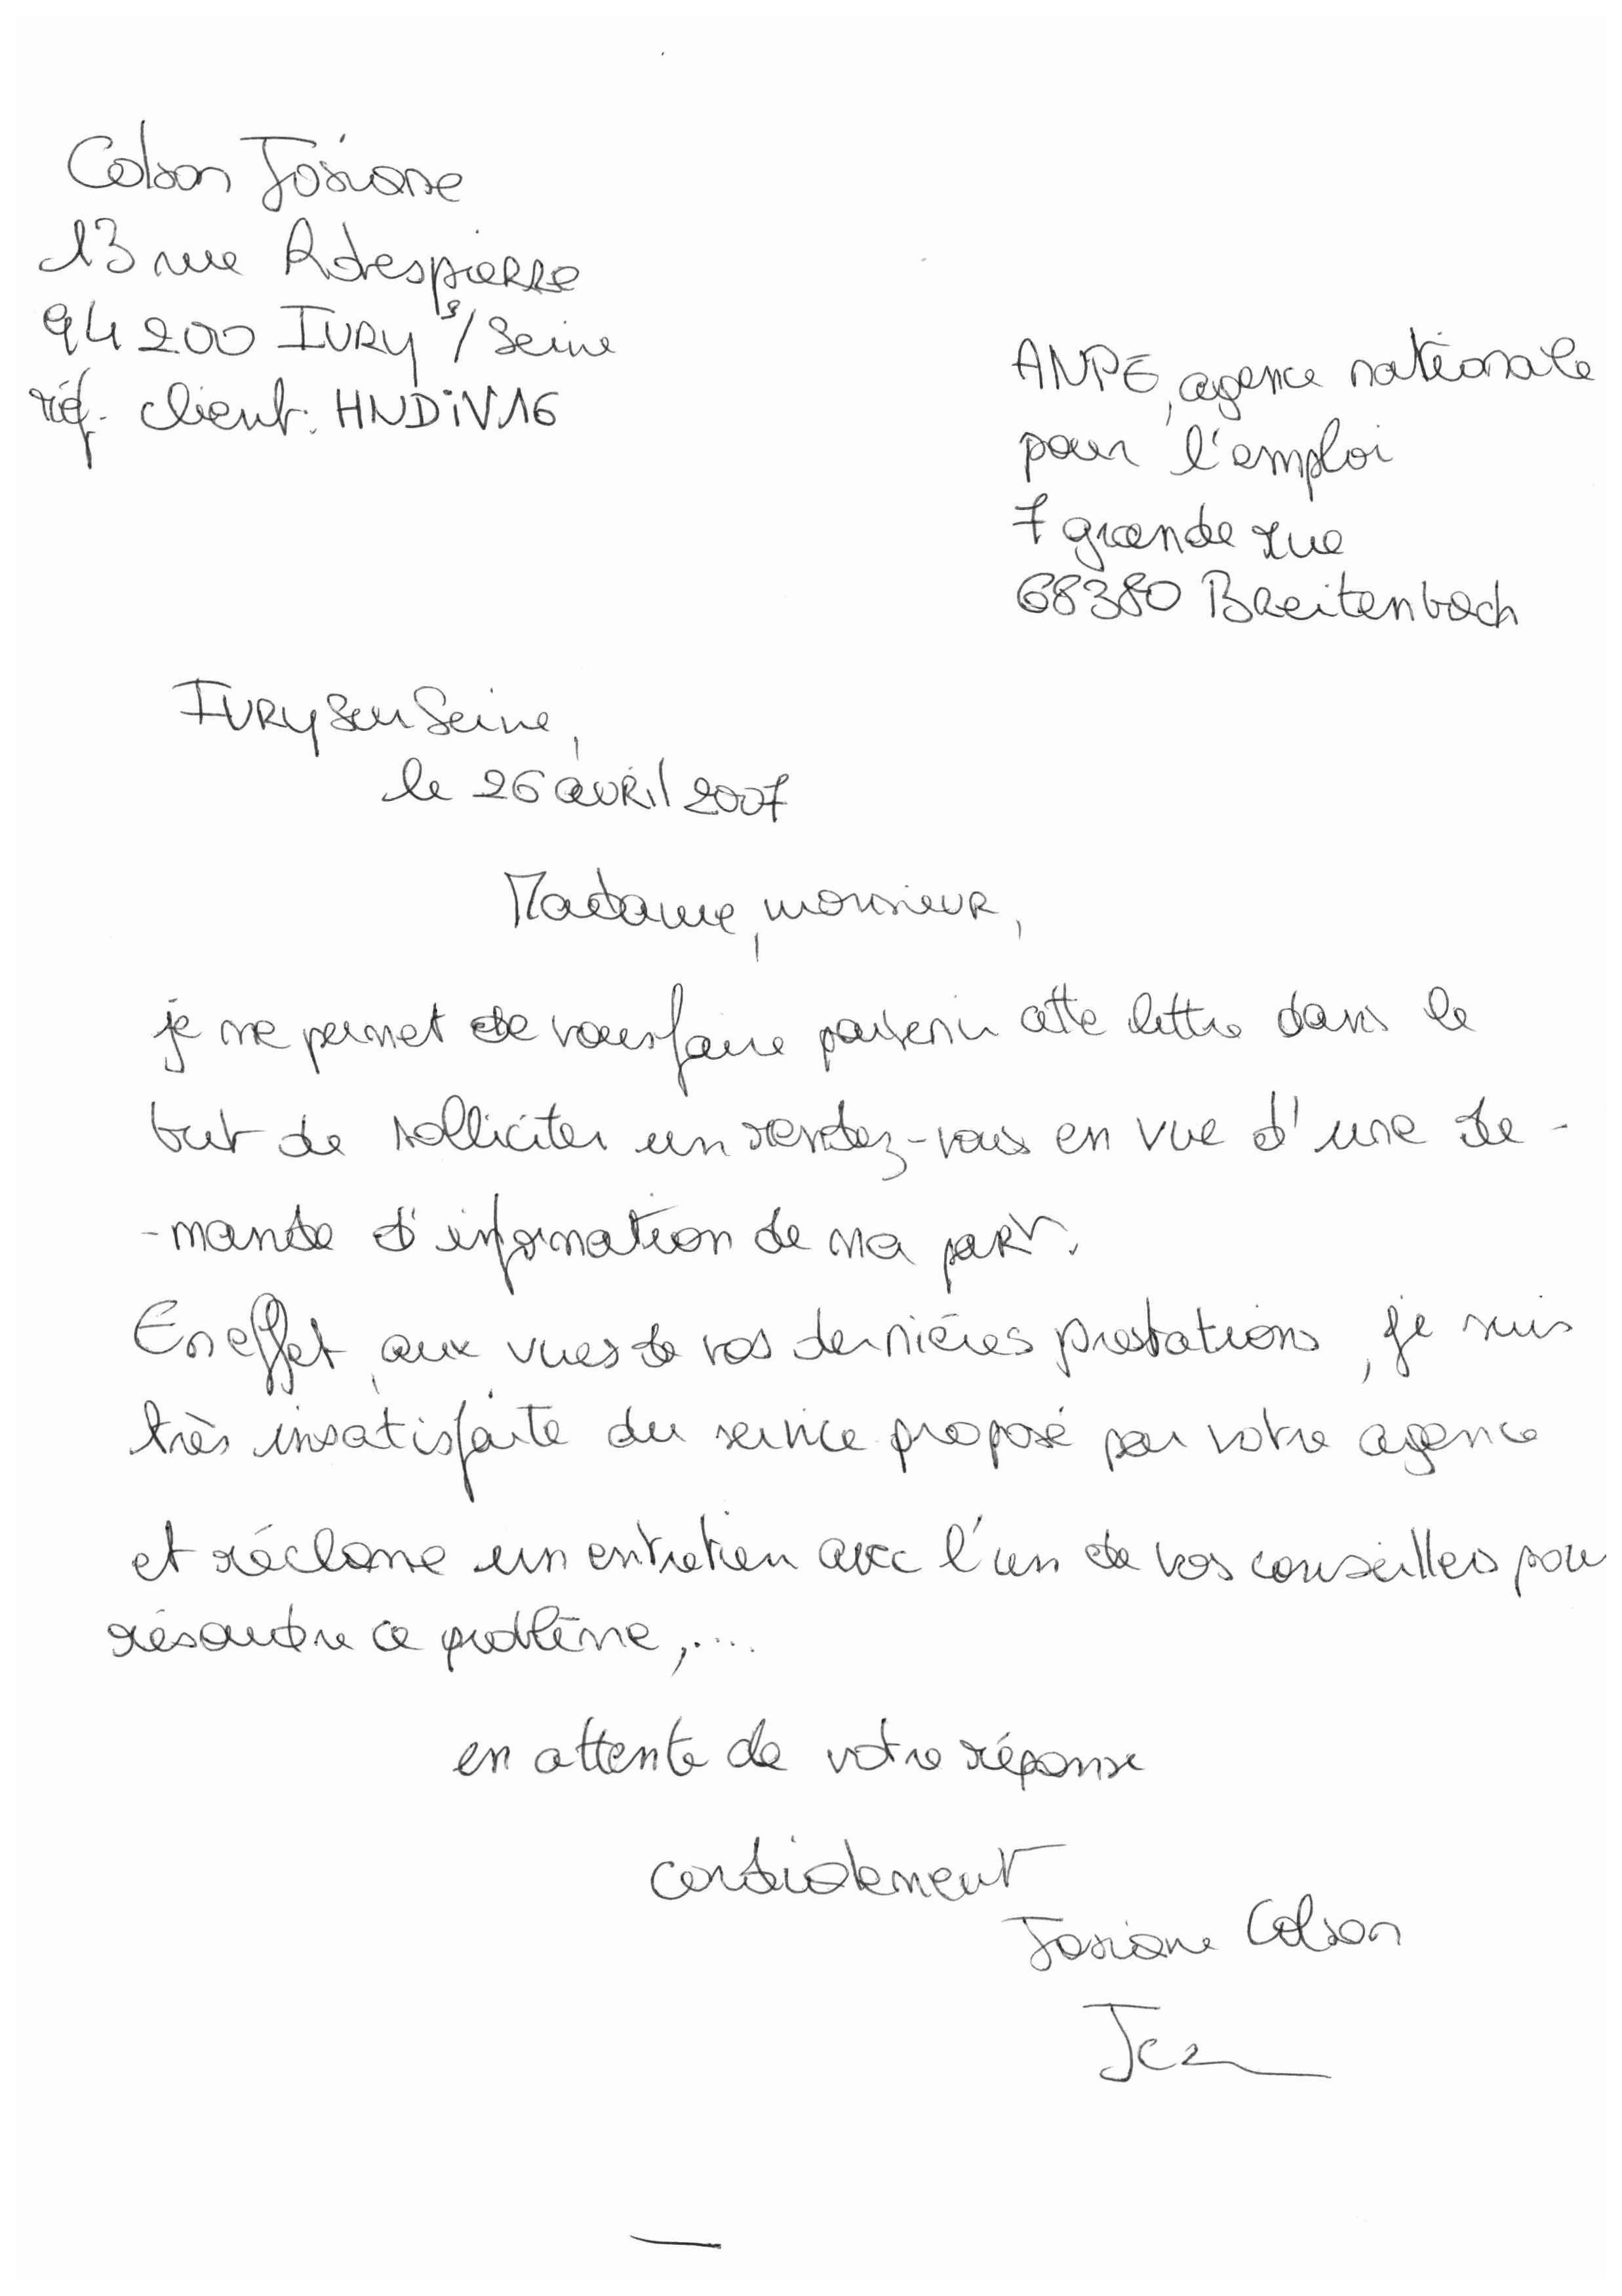 Colson Josiane
13 rue Robespierre
94200 IVRY s/Seine
réf. client: HNDiV16
ANPE, agence nationale
pour l'emploi
7 grande rue
68380 Breitenbach
IVRY sur Seine,
le 26 avril 2007
Madame, monsieur,
je me permet de vous faire parvenir cette lettre dans le
but de solliciter un rendez-vous en vue d'une de-
-mande d'information de ma part.
En effet, aux vues de vos dernières prestations, je suis
très insatisfaite du service proposé par votre agence
et réclame un entretien avec l'un de vos conseillers pour
résoudre ce problème,....
en attente de votre réponse
cordialement
Josiane Colson